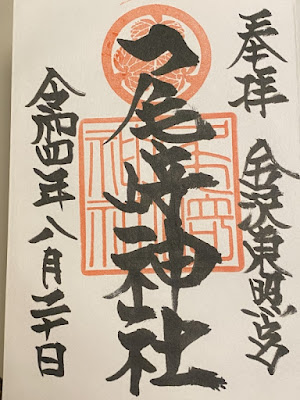 奉拝
金沢東照宮
尾崎神社
令和四年八月二十日